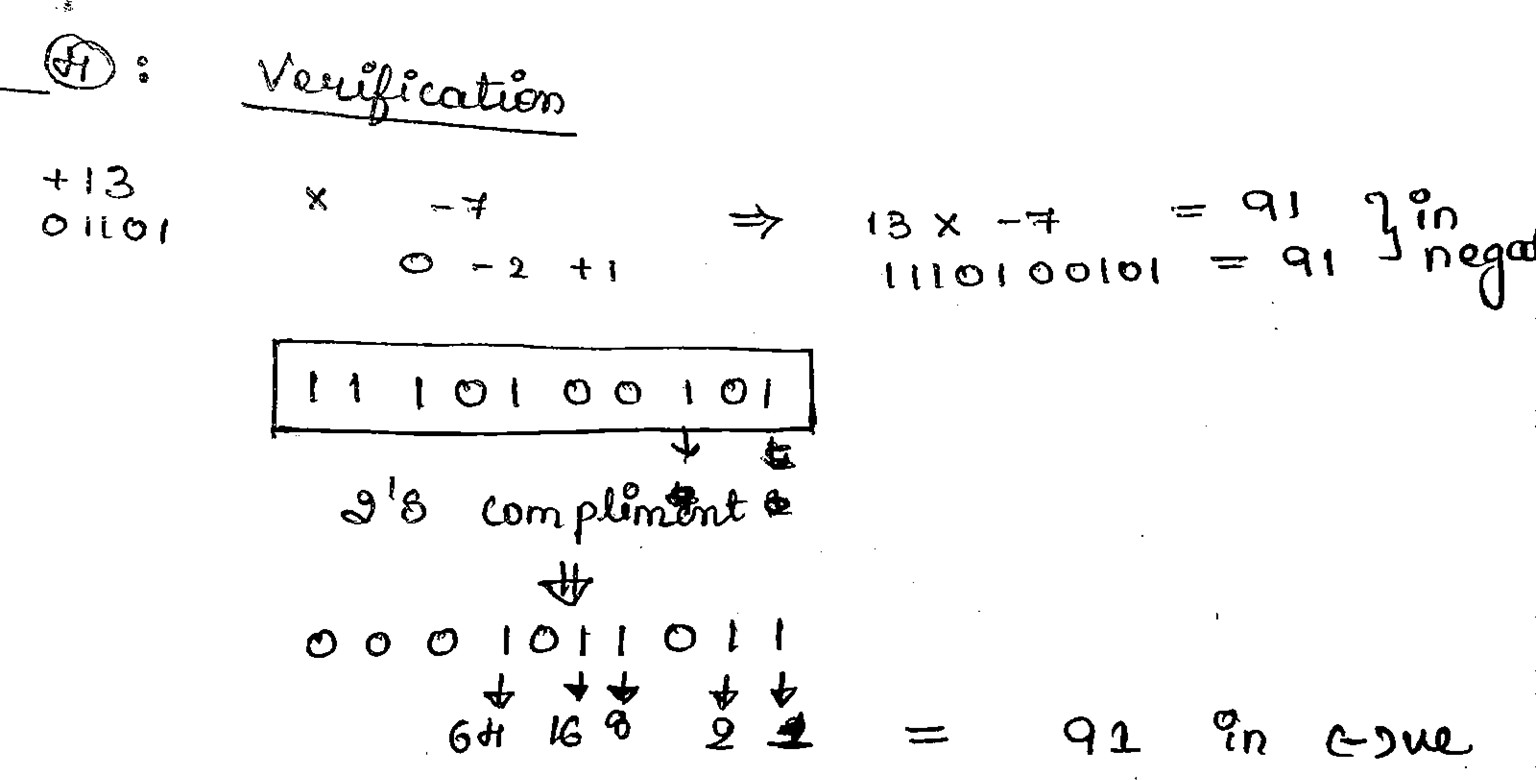 4 : Verification
+13 × -7 ⇒ 13 × -7 = 91 } in
01101 0 -2 +1 1110100101 = 91
1110100101
2's compliment
⇓
0001011011
↓ ↓ ↓ ↓ ↓
64 16 8 2 1 = 91 in (-)ve